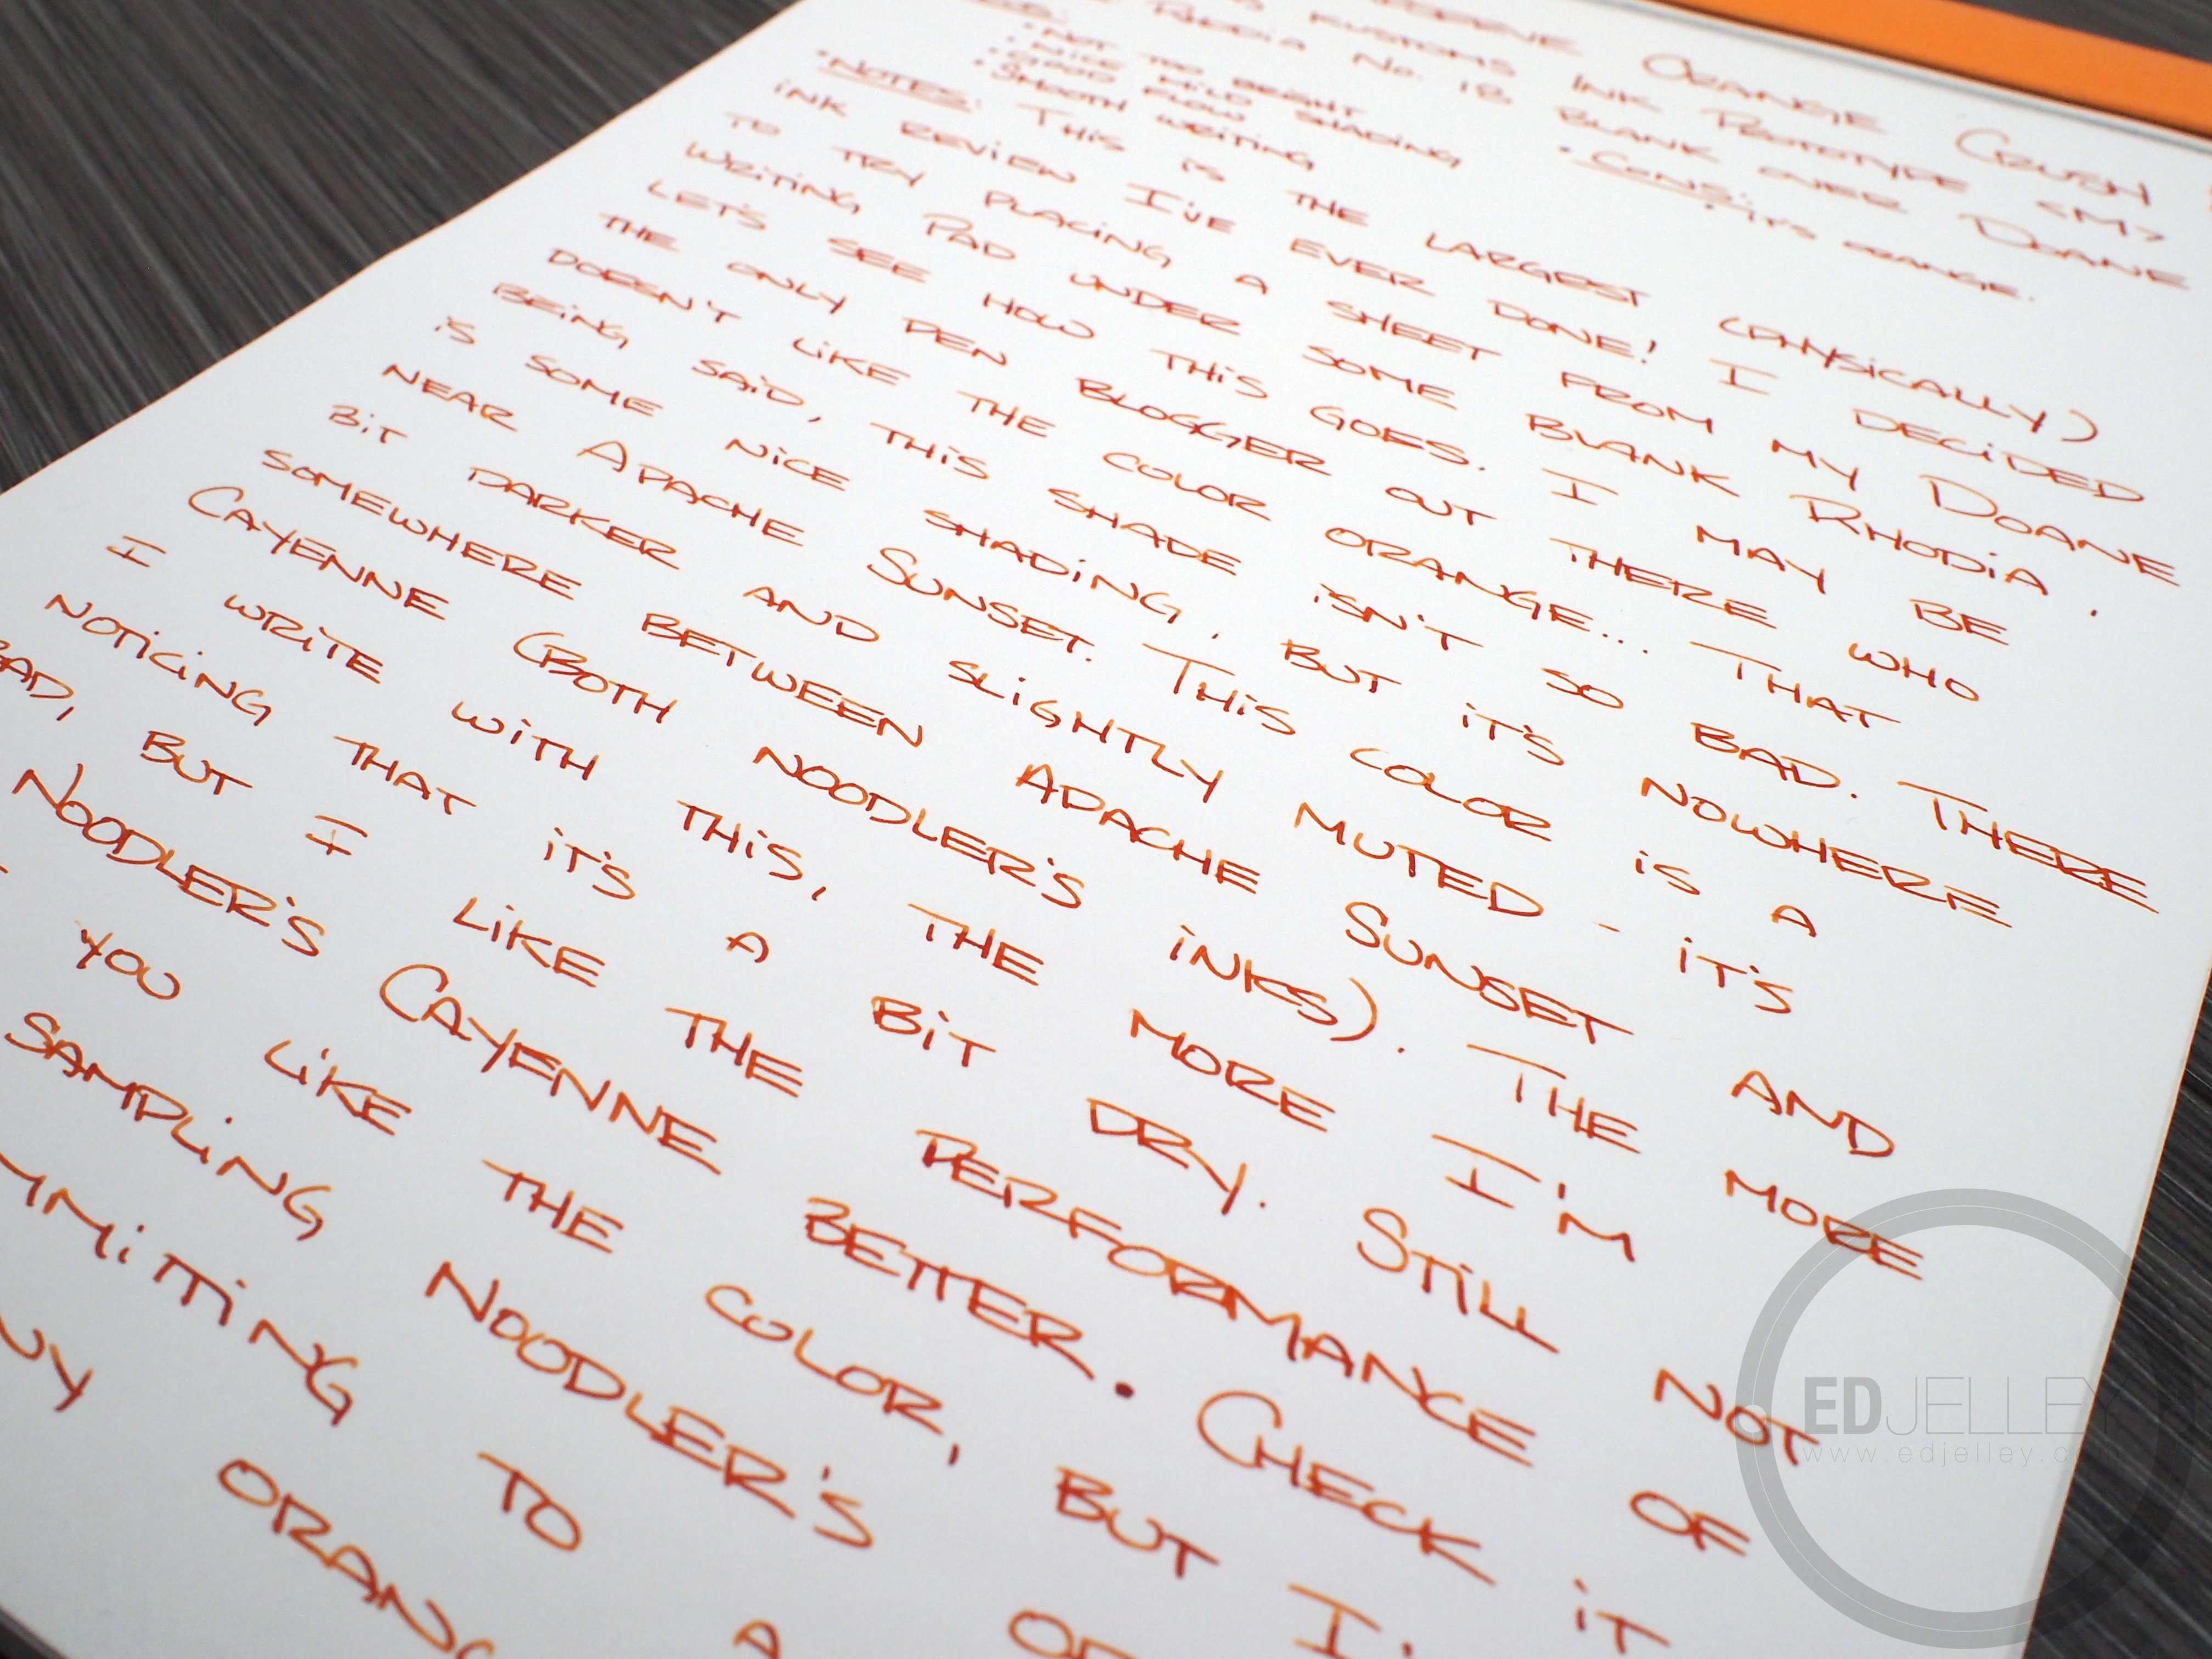 ORANGE CRUSH
KUSTOMS INK PROTOTYPE <M>
RHODIA No. 18 BLANK OVER DOANE
• NOT TOO BRIGHT
• NICE MILD SHADING
• GOOD FLOW
• SMOOTH WRITING
• CONS: • IT'S ORANGE.
• NOTES: THIS IS THE LARGEST (PHYSICALLY)
INK REVIEW I'VE EVER DONE! I DECIDED
TO TRY PLACING A SHEET FROM MY DOANE
WRITING PAD UNDER SOME BLANK RHODIA.
LET'S SEE HOW THIS GOES. I MAY BE
THE ONLY PEN BLOGGER OUT THERE WHO
DOESN'T LIKE THE COLOR ORANGE... THAT
BEING SAID, THIS SHADE ISN'T SO BAD. THERE
IS SOME NICE SHADING, BUT IT'S NOWHERE
NEAR APACHE SUNSET. THIS COLOR IS A
BIT DARKER AND SLIGHTLY MUTED - IT'S
SOMEWHERE BETWEEN APACHE SUNSET AND
CAYENNE (BOTH NOODLER'S INKS). THE MORE
I WRITE WITH THIS, THE MORE I'M
NOTICING THAT IT'S A BIT DRY. STILL NOT
BAD, BUT I LIKE THE PERFORMANCE OF
NOODLER'S CAYENNE BETTER. CHECK IT
YOU LIKE THE COLOR, BUT I
SAMPLING NOODLER'S
MMITTING TO A
ORANG
EDJELLEY
www.edjelley.com